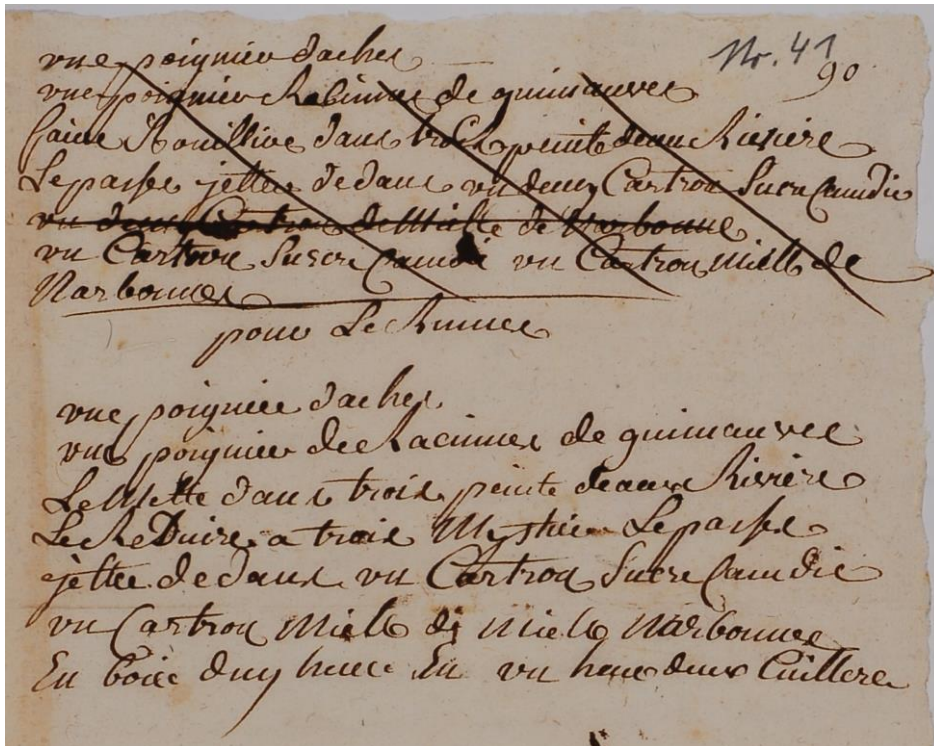 Nr. 41
90
vne poignier daches
vne poignier Racinnes de guimauves
faire Bouillire dans trois peinte deaux Rivière
Le passer jetter dedans vn demy Cartron Sucre Camdie
vn demy Cartron de Mielle de Narbonne
vn Cartron Sucre Camdie vn Cartron Mielle de
Narbonnes
pour Le Rumes
vne poigniee daches
vne poignier de Racinnes de guimauves
Le Mette dans trois peinte deaux Rivière
Le ReDuire a trois Le passer
jetter dedans vn Cartron Sucre Camdie
vn Cartron Mielle de Mielle Narbonnes
En boire En vn heure deux Cuillere